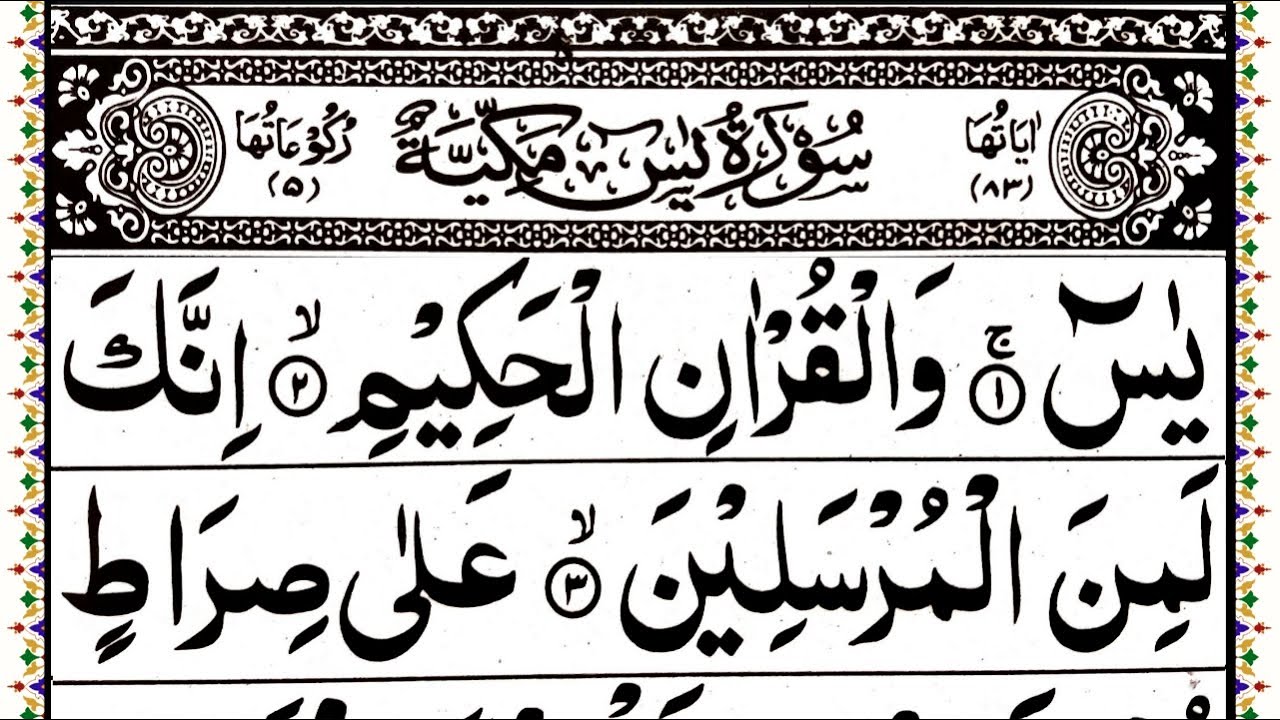 اٰیَاتُهَا سُوْرَةُ یٰسٓ مَكِّیَّةٌ رُكُوْعَاتُهَا
(۸۳) (۵)
یٰسٓ ۚ﴿۱﴾ وَالْقُرْاٰنِ الْحَكِیْمِ ۙ﴿۲﴾ اِنَّكَ
لَمِنَ الْمُرْسَلِیْنَ ۙ﴿۳﴾ عَلٰی صِرَاطٍ